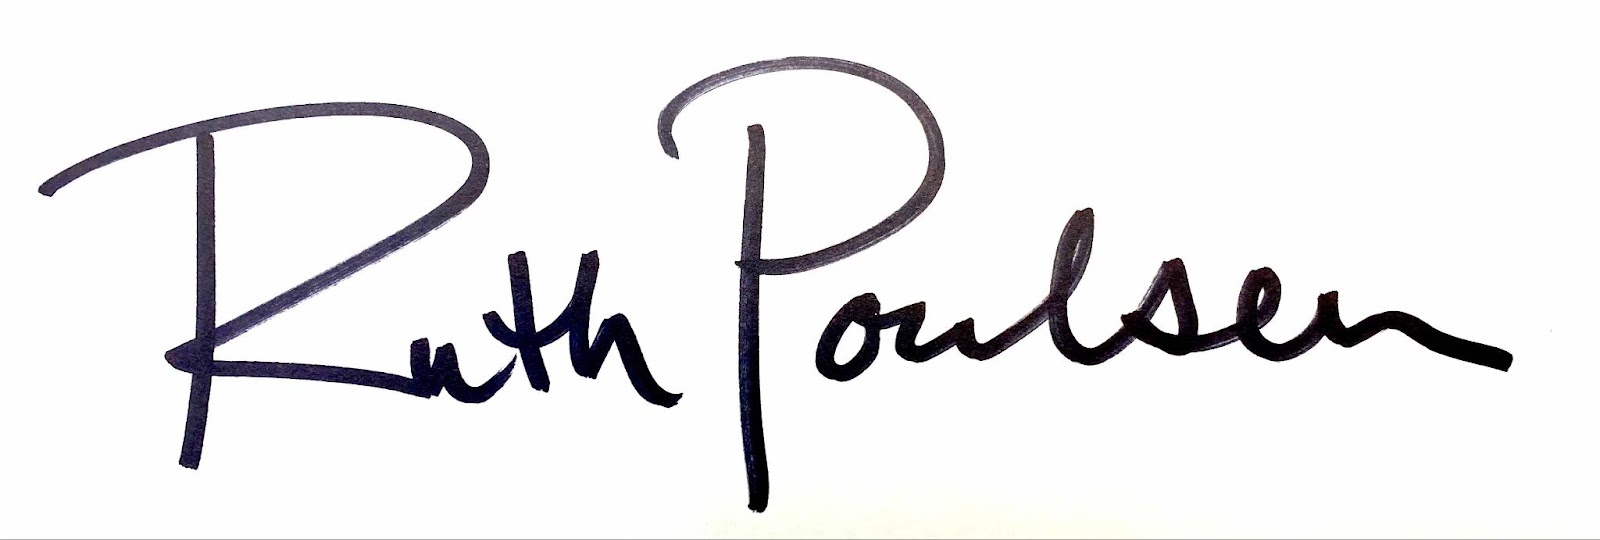 Ruth Poulsen